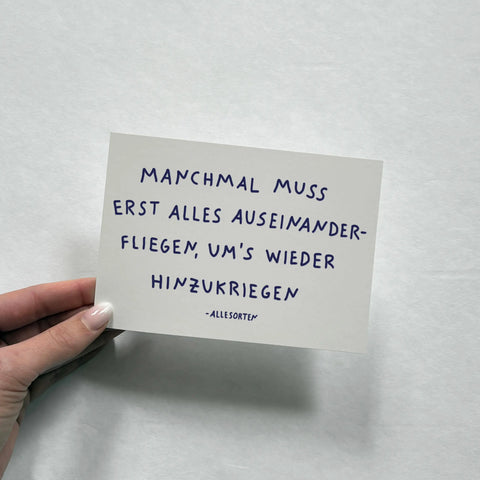 MANCHMAL MUSS
ERST ALLES AUSEINANDER-
FLIEGEN, UM'S WIEDER
HINZUKRIEGEN
-ALLESORTEN